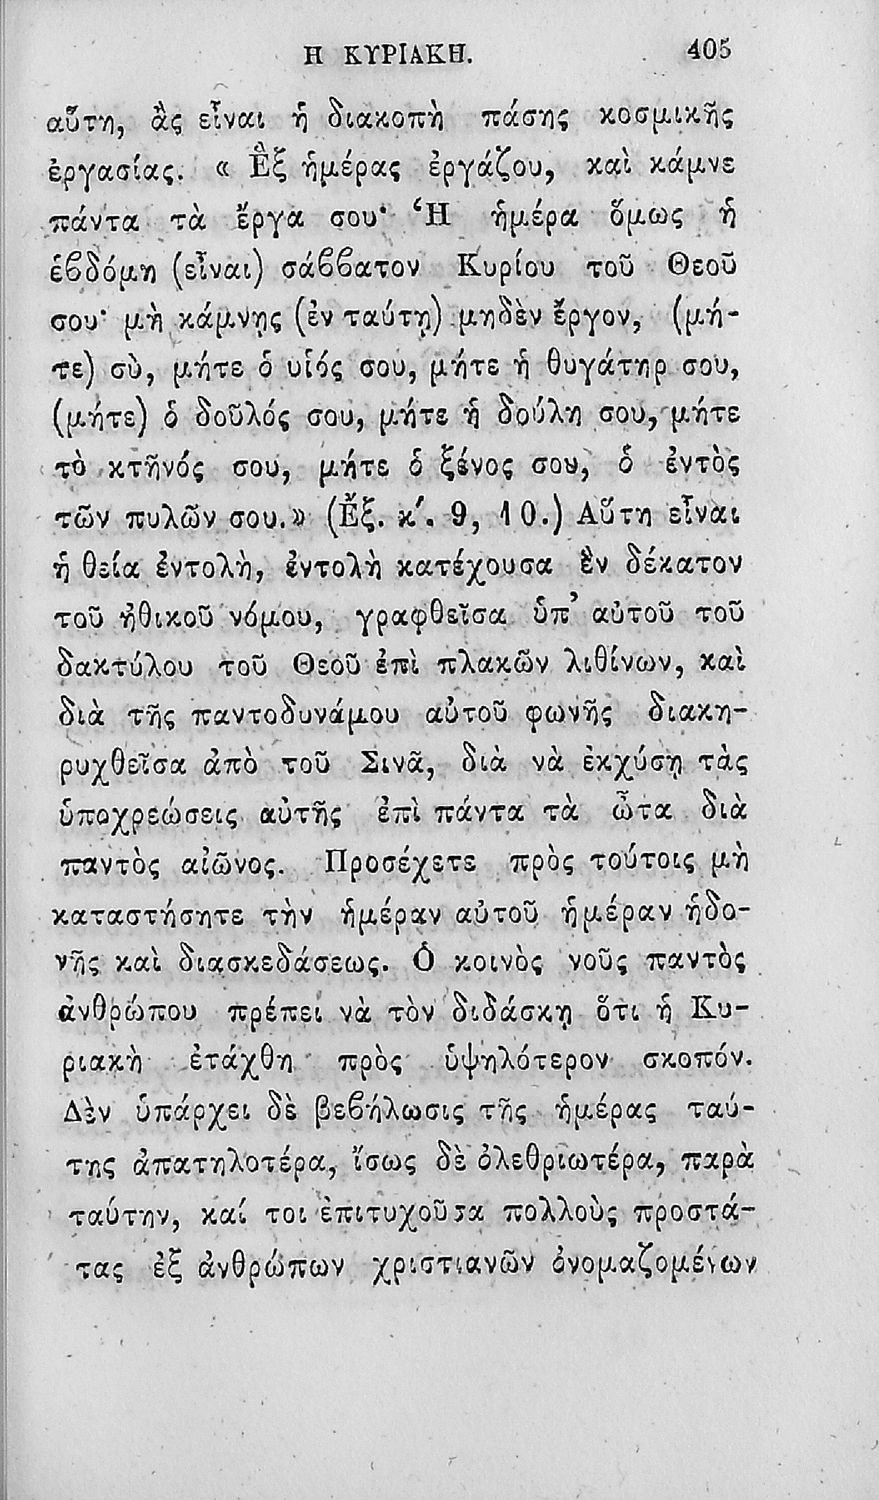 Η ΚΥΡΙΑΚΗ. 405
αὕτη, ἂς εἶναι ἡ διακοπὴ πάσης κοσμικῆς
ἐργασίας. « Ἓξ ἡμέρας ἐργάζου, καὶ κάμνε
πάντα τὰ ἔργα σου· Ἡ ἡμέρα ὅμως ἡ
ἑβδόμη (εἶναι) σάββατον Κυρίου τοῦ Θεοῦ
σου· μὴ κάμνῃς (ἐν ταύτῃ) μηδὲν ἔργον, (μή-
τε) σὺ, μήτε ὁ υἱός σου, μήτε ἡ θυγάτηρ σου,
(μήτε) ὁ δοῦλός σου, μήτε ἡ δούλη σου, μήτε
τὸ κτῆνός σου, μήτε ὁ ξένος σου, ὁ ἐντὸς
τῶν πυλῶν σου.» (Ἔξ. κ΄. 9, 10.) Αὕτη εἶναι
ἡ θεία ἐντολὴ, ἐντολὴ κατέχουσα ἓν δέκατον
τοῦ ἠθικοῦ νόμου, γραφθεῖσα ὑπ’ αὐτοῦ τοῦ
δακτύλου τοῦ Θεοῦ ἐπὶ πλακῶν λιθίνων, καὶ
διὰ τῆς παντοδυνάμου αὑτοῦ φωνῆς διακη-
ρυχθεῖσα ἀπὸ τοῦ Σινᾶ, διὰ νὰ ἐκχύσῃ τὰς
ὑποχρεώσεις αὑτῆς ἐπὶ πάντα τὰ ὦτα διὰ
παντὸς αἰῶνος. Προσέχετε πρὸς τούτοις μὴ
καταστήσητε τὴν ἡμέραν αὐτοῦ ἡμέραν ἡδο-
νῆς καὶ διασκεδάσεως. Ὁ κοινὸς νοῦς παντὸς
ἀνθρώπου πρέπει νὰ τὸν διδάσκῃ ὅτι ἡ Κυ-
ριακὴ ἐτάχθη πρὸς ὑψηλότερον σκοπόν.
Δὲν ὑπάρχει δὲ βεβήλωσις τῆς ἡμέρας ταύ-
της ἀπατηλοτέρα, ἴσως δὲ ὀλεθριωτέρα, παρὰ
ταύτην, καί τοι ἐπιτυχοῦσα πολλοὺς προστά-
τας ἐξ ἀνθρώπων χριστιανῶν ὀνομαζομένων